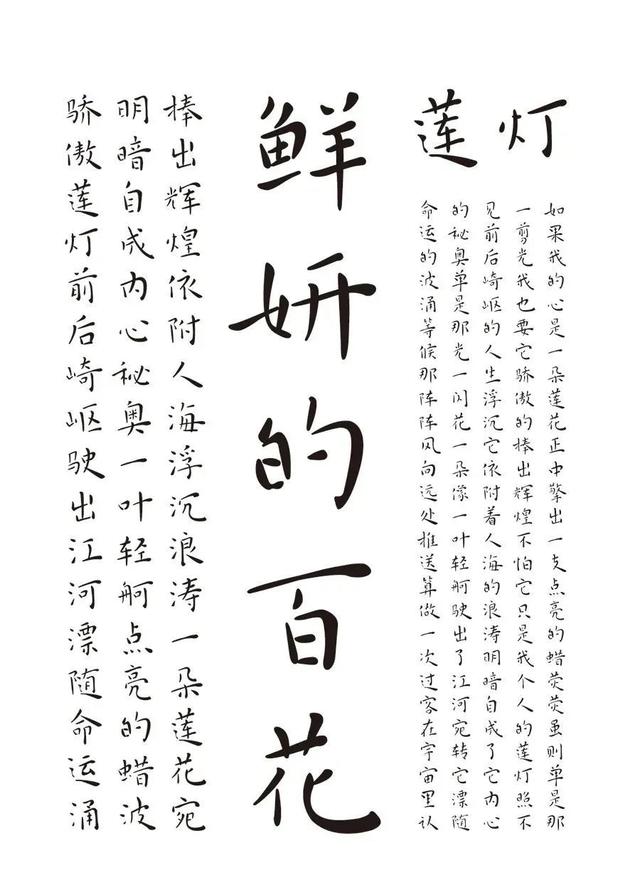 莲灯
如果我的心是一朵莲花正中擎出一支点亮的蜡荧荧虽则单是那
一剪光我也要它骄傲的捧出辉煌不怕它只是我个人的莲灯照不
见前后崎岖的人生浮沉它依附着人海的浪涛明暗自成了它内心
的秘奥单是那光一闪花一朵像一叶轻舸驶出了江河宛转它漂随
命运的波涌等候那阵阵风向远处推送算做一次过客在宇宙里认
鲜妍的百花
捧出辉煌依附人海浮沉浪涛一朵莲花宛
明暗自成内心秘奥一叶轻舸点亮的蜡波
骄傲莲灯前后崎岖驶出江河漂随命运涌